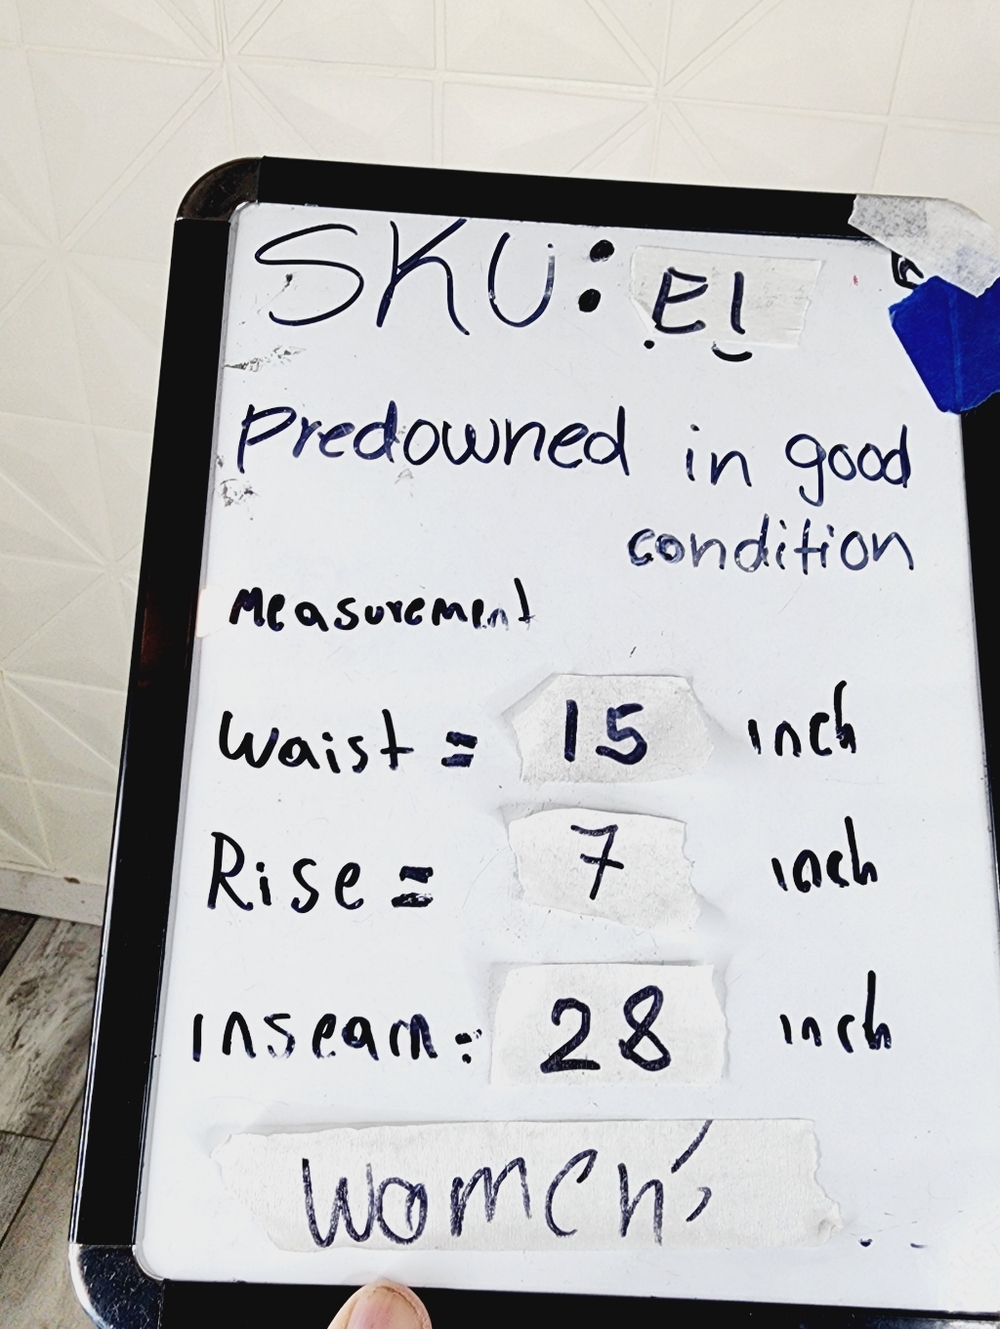 SKU: E1
Predowned in good
condition
Measurement
Waist = 15 inch
Rise = 7 inch
Inseam: 28 inch
Women's